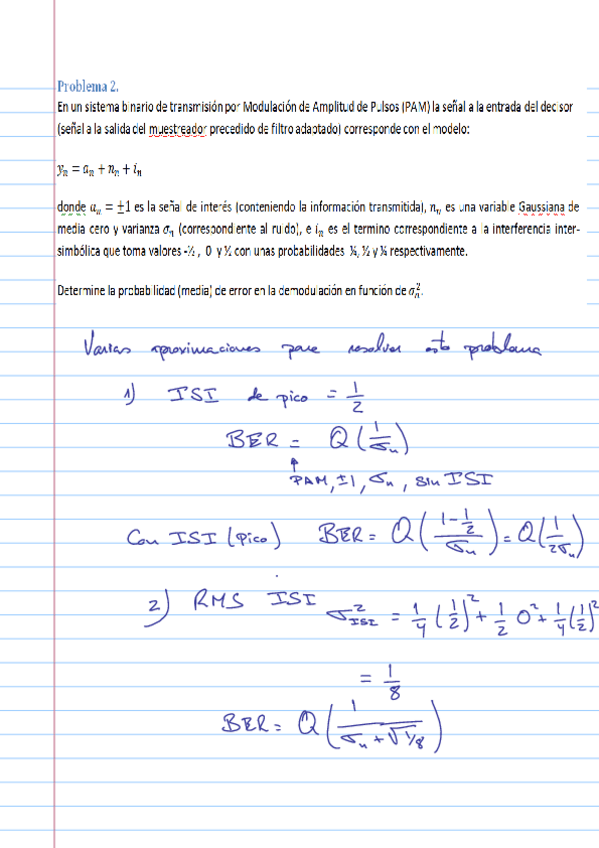 Problema 2.
En un sistema binario de transmisión por Modulación de Amplitud de Pulsos (PAM) la señal a la entrada del decisor
(señal a la salida del muestreador precedido de filtro adaptado) corresponde con el modelo:
yₙ = aₙ + nₙ + iₙ
donde aₙ = ±1 es la señal de interés (conteniendo la información transmitida), nₙ es una variable Gaussiana de
media cero y varianza σₙ (correspondiente al ruido), e iₙ es el termino correspondiente a la interferencia inter-
simbólica que toma valores -½ , 0 y ½ con unas probabilidades ¼, ½ y ¼ respectivamente.
Determine la probabilidad (media) de error en la demodulación en función de σₙ².
Varias aproximaciones para resolver este problema
1) ISI de pico = 1/2
BER = Q(1/σₙ)
↑
PAM, ±1, σₙ, sin ISI
Con ISI (pico) BER = Q((1-1/2)/σₙ) = Q(1/2σₙ)
2) RMS ISI σ²ISI = 1/4 (1/2)² + 1/2 0² + 1/4 (1/2)²
= 1/8
BER = Q(1/(σₙ + √1/8))